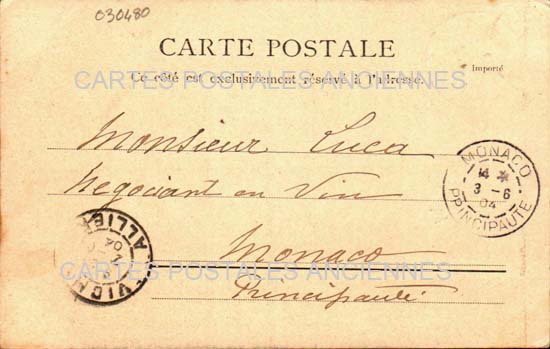 030480
CARTE POSTALE
Ce côté est exclusivement réservé à l'adresse.
Importé
CARTES POSTALES ANCIENNES
Monsieur Luca
Negociant en Vin
Monaco
Principauté
MONACO
14 *
3 - 6
04
PRINCIPAUTE
VICHY
ALLIER
04
CARTES POSTALES ANCIENNES